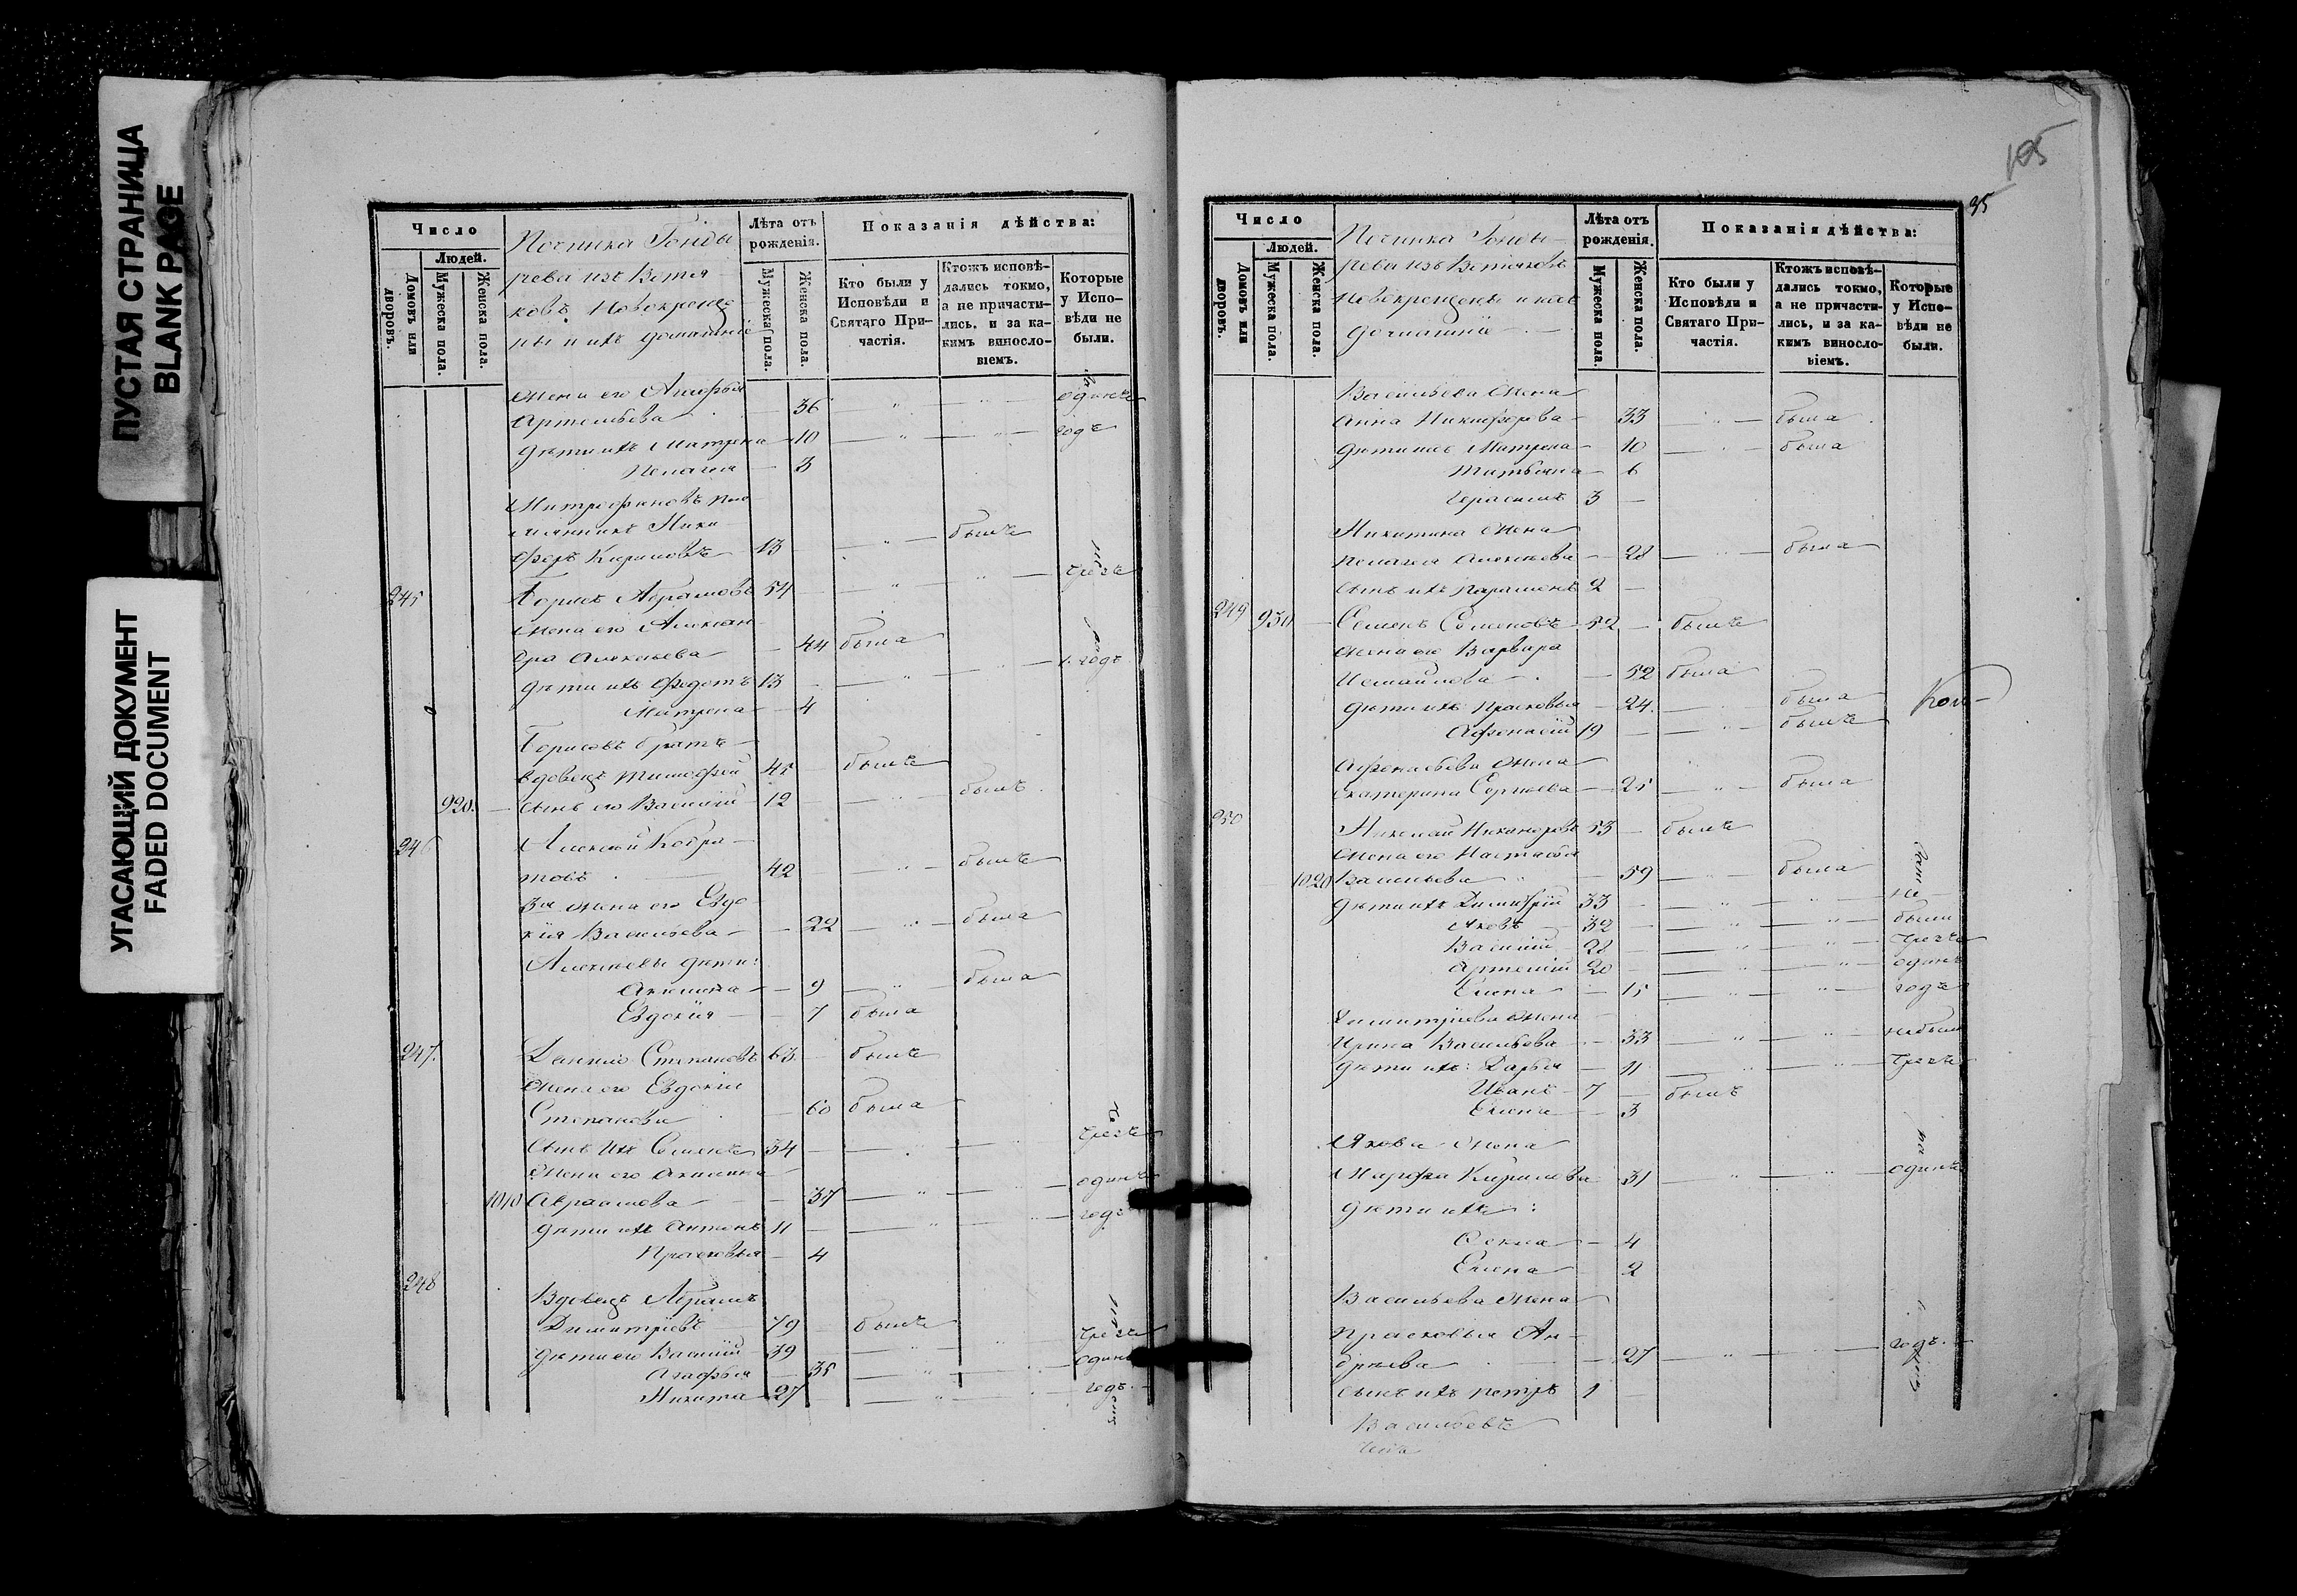 ПУСТАЯ СТРАНИЦА
BLANK PAGE
УГАСАЮЩИЙ ДОКУМЕНТ
FADED DOCUMENT
Число
Людей.
Домовъ или дворовъ.
Мужеска пола.
Женска пола.
Починка Гонды-
рева изъ Вотя-
ковъ Новокреще
ны и ихъ домашніе
Лѣта отъ рожденія.
Мужеска пола.
Женска пола.
Показанія дѣйства:
Кто были у Исповѣди и Святаго Причастія.
Ктожъ исповѣ-
дались токмо,
а не причасти-
лись, и за ка-
кимъ винословіемъ.
Которые у Испо-
вѣди не были.
жена его Агафья
Артемьева 36 одинъ
дѣти ихъ Матрена 10 годъ
Пелагея 3
Митрофановъ пле
мянникъ Ники
форъ Кириловъ 13 былъ
245 Борисъ Абрамовъ 54 чрезъ
жена его Алексан
дра Алексѣева 44 была
дѣти ихъ Федотъ 13 1. годъ
Матрена 4
Борисовъ братъ
вдовецъ Тимофей 45 былъ
920. сынъ его Василій 12 былъ
246 Алексѣй
товъ 42 былъ
3я жена его Евдо
кія Васильева 22 была
Алексѣевы дѣти:
Акилина 9 была
Евдокія 7 была
247. Данило Степановъ 63 былъ
жена его Евдокія
Степанова 60 была
сынъ ихъ Семенъ 34 чрезъ
жена его Акилина
1010 Авраамова 37 одинъ
дѣти ихъ Антонъ 11 годъ
Прасковья 4
248
Вдовецъ Абрамъ
Димитріевъ 79 былъ
дѣти его Василій 39 чрезъ
Агафья 35 одинъ
Никита 27 годъ.
105
95
Число
Людей.
Домовъ или дворовъ.
Мужеска пола.
Женска пола.
Починка Гонды-
рева изъ Вотяковъ
новокрещены и ихъ
домашніе
Лѣта отъ рожденія.
Мужеска пола.
Женска пола.
Показанія дѣйства:
Кто были у Исповѣди и Святаго Причастія.
Ктожъ исповѣ-
дались токмо,
а не причасти-
лись, и за ка-
кимъ винословіемъ.
Которые у Испо-
вѣди не были.
Васильева жена
Анна Никифорова 33 была
дѣти ихъ Матрена 10 была
Татьяна 6
Герасимъ 3
Никитина жена
Пелагея Алексѣева 28 была
сынъ ихъ Парамонъ 2
249 930 Семенъ Семеновъ 52 былъ
жена его Варвара
Исмайлова 52 была
дѣти ихъ Прасковья 24. была
Афонасій 19 былъ
Афонасьева жена
Екатерина Сергѣева 25 была
250
Николай Никаноровъ 53 былъ
жена его Настасья
1020 Васильева 59 была
дѣти ихъ Димитрій 33 не
Яковъ 32 были
Василій 28 чрезъ
Артемій 20 одинъ
Елена 15 годъ
Димитріева жена
Ирина Васильева 33 небыла
дѣти ихъ: Дарья 11 чрезъ
Иванъ 7 былъ
Елена 3
Якова жена
Марфа Кирилова 31 одинъ
дѣти ихъ:
Фекла 4
Елена 2
Васильева жена
Прасковья Ан-
дрѣева 27 годъ.
сынъ ихъ Петръ 1
Васильевъ